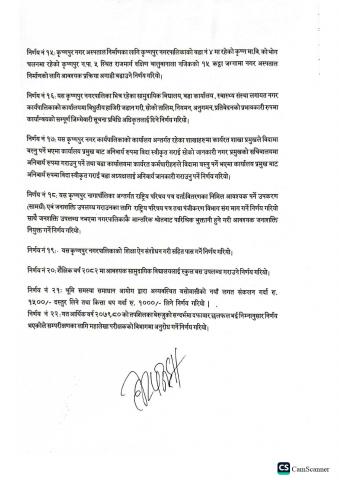 निर्णय नं १५: कृष्णपुर नगर अस्पताल निर्माणका लागि कृष्णपुर नगरपालिकाको वडा नं ४ मा रहेको कृष्ण मा.बि. को भोग
चलनमा रहेको कृष्णपुर न.पा. ५ स्थित राजमार्ग दक्षिण बालुवानाला नजिकको १५ कठ्ठा जग्गामा नगर अस्पताल
निर्माणको लागि आवश्यक प्रक्रिया अगाडी बढाउने निर्णय गरियो;
निर्णय नं १६. यस कृष्णपुर नगरपालिका भित्र रहेका सामुदायिक विद्यालय, वडा कार्यालय, स्वास्थ्य संस्था लगायत नगर
कार्यपालिकाको कार्यालयमा विद्युतीय हाजिरी जडान गरी, सोको लागि नियमन, अनुगमन, प्रतिवेदनको प्रभावकारी रुपमा
कार्यान्वयको सम्पूर्ण जिम्मेवारी सूचना प्रविधि अधिकृतलाई दिने निर्णय गरियो;
निर्णय नं १७: यस कृष्णपुर नगर कार्यपालिकाको कार्यालय अन्तर्गत रहेका शाखाहरुमा कार्यरत शाखा प्रमुखले विदामा
बस्नु पर्ने भएमा कार्यालय प्रमुख बाट अनिवार्य रुपमा विदा स्वीकृत गराई सोको जानकारी नगर प्रमुखको सचिवालयमा
अनिवार्य रुपमा गराउनु पर्ने तथा वडा कार्यालयमा कार्यरत कर्मचारीहरुले विदामा बस्नु पर्ने भएमा कार्यालय प्रमुख बाट
अनिवार्य रुपमा विदा स्वीकृत गराई वडा अध्यक्षलाई अनिवार्य जानकारी गराउनु पर्ने निर्णय गरियो।
निर्णय नं १८: यस कृष्णपुर नगरपालिका अन्तर्गत राष्ट्रिय परिचय पत्र दर्ता वितरणका निम्ति आवश्यक पर्ने उपकरण
(सामग्री) एवं जनशक्ति उपलब्ध गराउनका लागि राष्ट्रिय परिचय पत्र तथा पंजीकरण विभाग संग माग गर्ने निर्णय गरियो
साथै जनशक्ति उपलब्ध नभएमा नगरपालिकाकै आन्तरिक श्रोतबाट पारिश्रमिक भुक्तानी हुने गरी आवश्यक जनशक्ति
नियुक्त गर्ने निर्णय गरियो।
निर्णय नं १९:- यस कृष्णपुर नगरपालिकाको शिक्षा ऐन संशोधन गरी सहित पास गर्ने निर्णय गरियो।
निर्णय नं २०: शैक्षिक वर्ष २०८२ मा आवश्यक सामुदायिक विद्यालयलाई स्कुल बस उपलब्ध गराउने निर्णय गरियो।
निर्णय नं २१: भूमि समस्या समाधान आयोग द्वारा अव्यवस्थित बसोबासीको नयाँ लगत संकलन गर्दा रु.
१५००/- दस्तुर लिने तथा कित्ता थप गर्दा रु. १०००/- लिने निर्णय गरियो।
निर्णय नं २२: गत आर्थिक वर्ष २०७९.८० को तपशिलका बेरुजुको सन्दर्भमा व्यापार छलफल भई निम्नानुसार निर्णय
भएकोले सम्परीक्षणका लागि महालेखा परीक्षकको विभागमा अनुरोध गर्ने निर्णय गरियो।
CS CamScanner